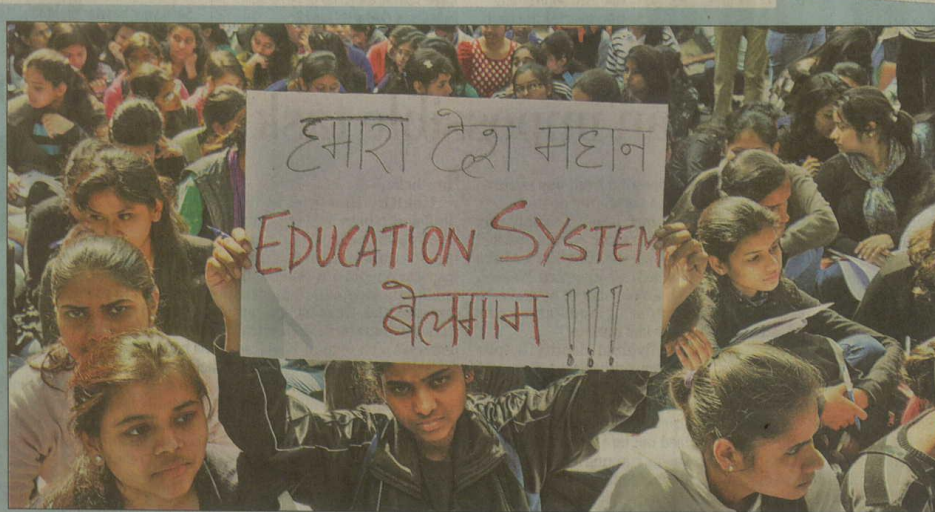 हमारा देश महान
EDUCATION SYSTEM
बेलगाम !!!